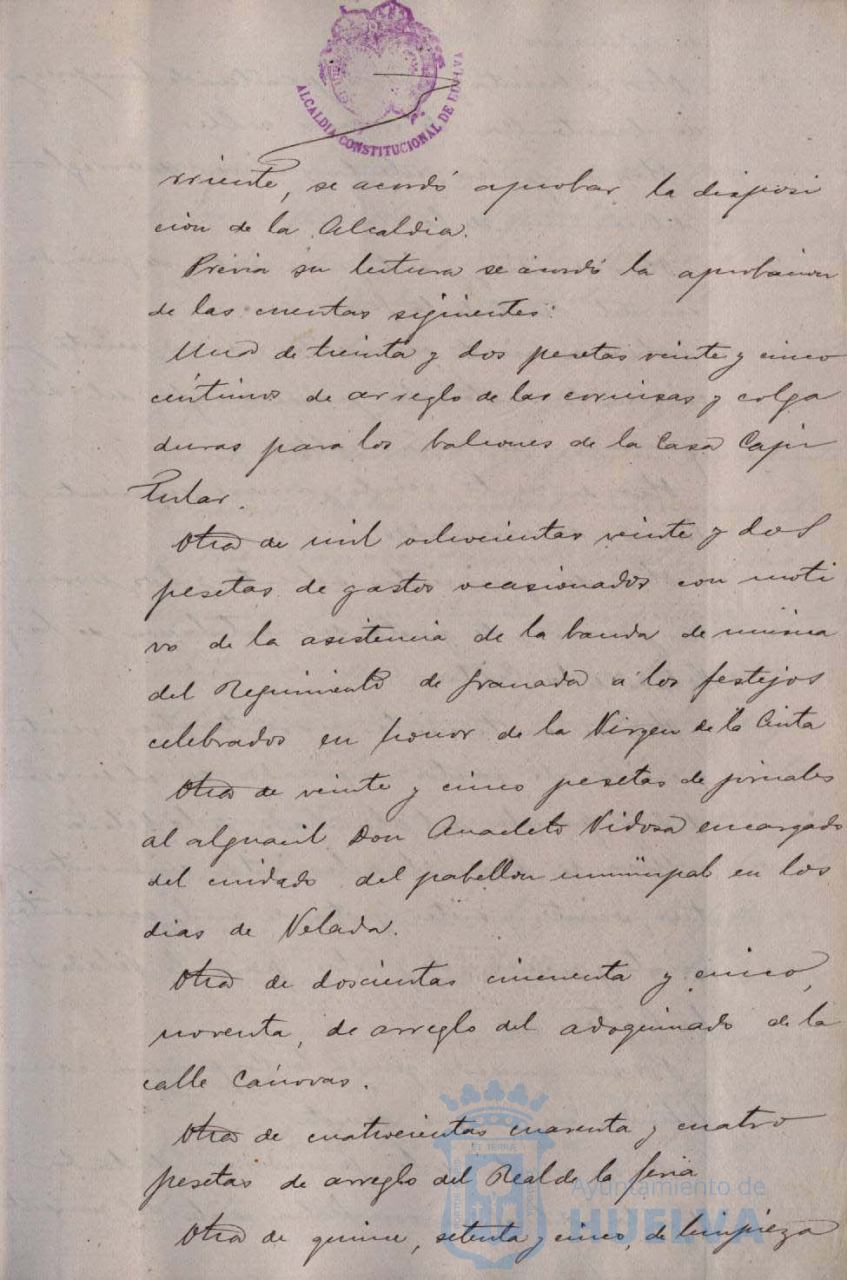 ALCALDIA CONSTITUCIONAL DE HUELVA
rriente, se acordó aprobar la disposi
ción de la Alcaldia.
Prévia su lectura se acordó la aprobacion
de las cuentas siguientes:
Una de treinta y dos pesetas veinte y cinco
céntimos de arreglo de las cornisas y colga
duras para los balcones de la Casa Capi
tular.
Otra de mil ochocientas veinte y dos
pesetas de gastos ocasionados con moti
vo de la asistencia de la banda de música
del Regimiento de Granada a los festejos
celebrados en honor de la Virgen de la Cinta
Otra de veinte y cinco pesetas de jornales
al alguacil Don Anacleto Vidosa encargado
del cuidado del pabellon municipal en los
dias de Velada.
Otra de doscientas cincuenta y cinco,
noventa, de arreglo del adoquinado de la
calle Cánovas.
Otra de cuatrocientas cuarenta y cuatro
pesetas de arreglo del Real de la feria
Otra de quince, setenta y cinco, de limpieza
Ayuntamiento de
HUELVA